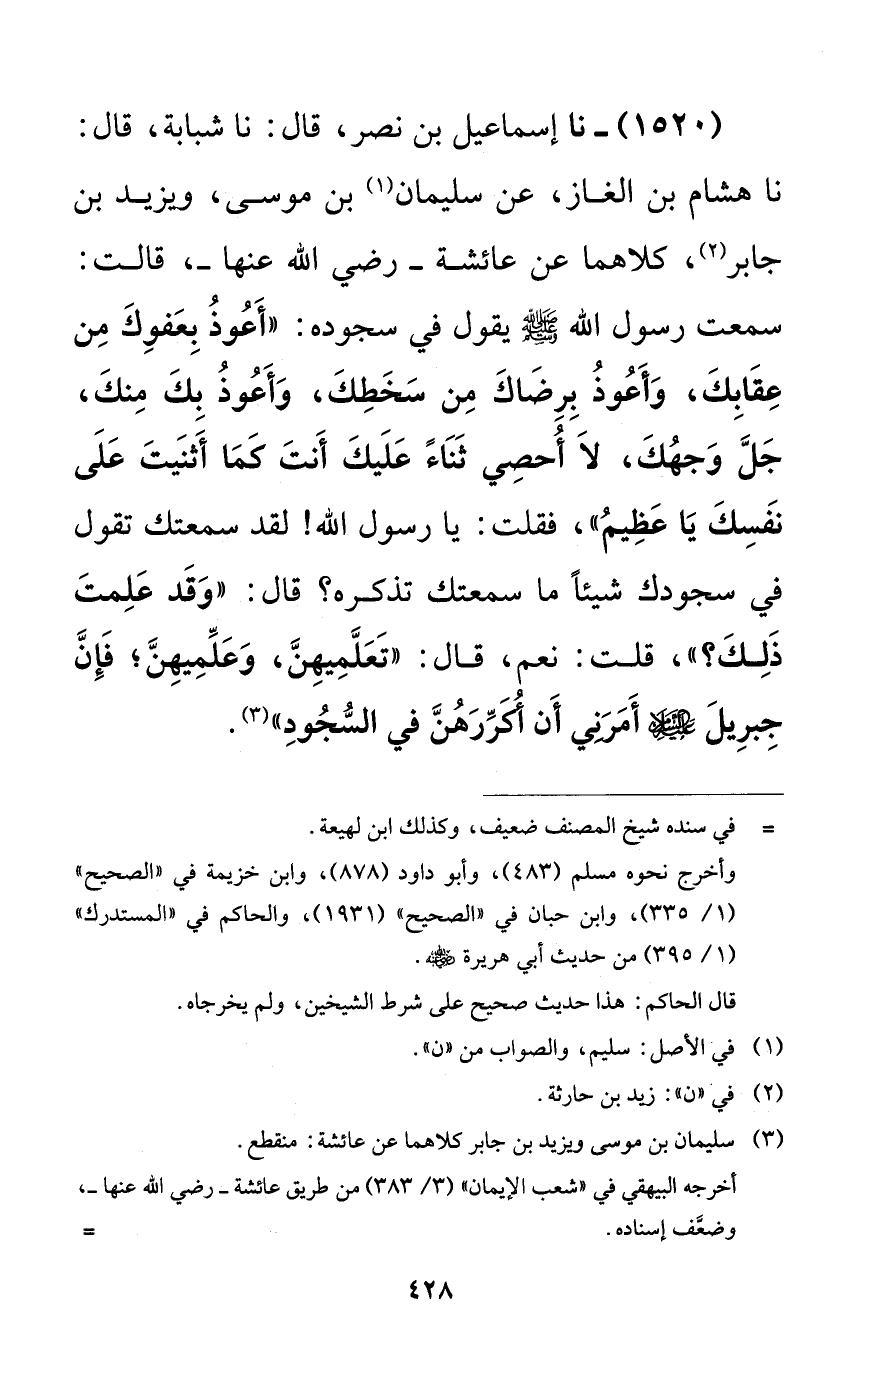 (١٥٢٠) ـ نا إسماعيل بن نصر، قال: نا شبابة، قال:
نا هشام بن الغـاز، عن سليمان(١) بن موسـى، ويزيـد بن
جابر(٢)، كلاهما عن عائشـة ـ رضي الله عنها ـ، قالـت:
سمعت رسول الله ﷺ يقول في سجوده: «أَعُوذُ بِعَفوِكَ مِن
عِقَابِكَ، وَأَعُوذُ بِرِضَاكَ مِن سَخَطِكَ، وَأَعُوذُ بِكَ مِنكَ،
جَلَّ وَجهُكَ، لاَ أُحصِي ثَنَاءً عَلَيكَ أَنتَ كَمَا أَثنَيتَ عَلَى
نَفسِكَ يَا عَظِيمُ»، فقلت: يا رسول الله! لقد سمعتك تقول
في سجودك شيئاً ما سمعتك تذكـره؟ قال: «وَقَد عَلِمتَ
ذَلِـكَ؟»، قلـت: نعم، قـال: «تَعَلَّمِيهِنَّ، وَعَلِّمِيهِنَّ؛ فَإِنَّ
جِبرِيلَ عليه السلام أَمَرَنِي أَن أُكَرِّرَهُنَّ في السُّجُودِ»(٣).
= في سنده شيخ المصنف ضعيف، وكذلك ابن لهيعة.
وأخرج نحوه مسلم (٤٨٣)، وأبو داود (٨٧٨)، وابن خزيمة في «الصحيح»
(١/ ٣٣٥)، وابن حبان في «الصحيح» (١٩٣١)، والحاكم في «المستدرك»
(١/ ٣٩٥) من حديث أبي هريرة رضي الله عنه.
قال الحاكم: هذا حديث صحيح على شرط الشيخين، ولم يخرجاه.
(١) في الأصل: سليم، والصواب من «ن».
(٢) في «ن»: زيد بن حارثة.
(٣) سليمان بن موسى ويزيد بن جابر كلاهما عن عائشة: منقطع.
أخرجه البيهقي في «شعب الإيمان» (٣/ ٣٨٣) من طريق عائشة ـ رضي الله عنها ـ،
وضعَّف إسناده. =
٤٢٨